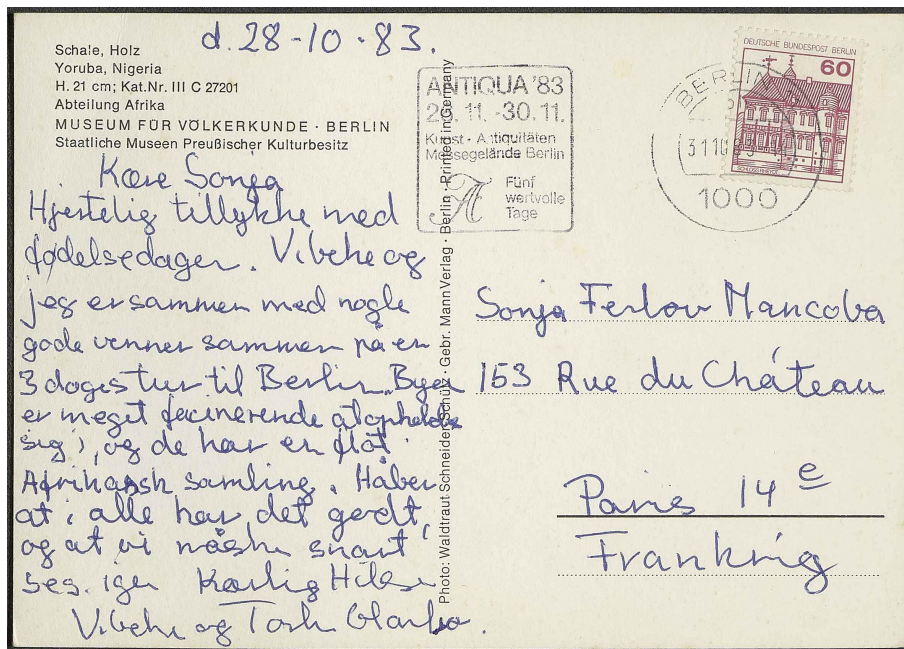 d. 28-10-83.
Schale, Holz
Yoruba, Nigeria
H. 21 cm; Kat.Nr. III C 27201
Abteilung Afrika
MUSEUM FÜR VÖLKERKUNDE · BERLIN
Staatliche Museen Preußischer Kulturbesitz
Kære Sonja
Hjertelig tillykke med
fødelsedagen. Vibeke og
jeg er sammen med nogle
gode venner sammen på en
3 dages tur til Berlin. Byen
er meget facinerende at opholde
sig i, og de har en flot
Afrikansk samling. Håber
at i alle har det godt,
og at vi måske snart
ses igen Kærlig Hilsen
Vibeke og
Photo: Waldtraut Schneider-Schütz · Gebr. Mann Verlag · Berlin · Printed in Germany
ANTIQUA '83
26.11.-30.11.
Kunst - Antiquitäten
Messegelände Berlin
A
Fünf
wertvolle
Tage
BERLIN
1000
DEUTSCHE BUNDESPOST BERLIN
60
Sonja Ferlov Mancoba
153 Rue du Château
Paris 14e
Frankrig